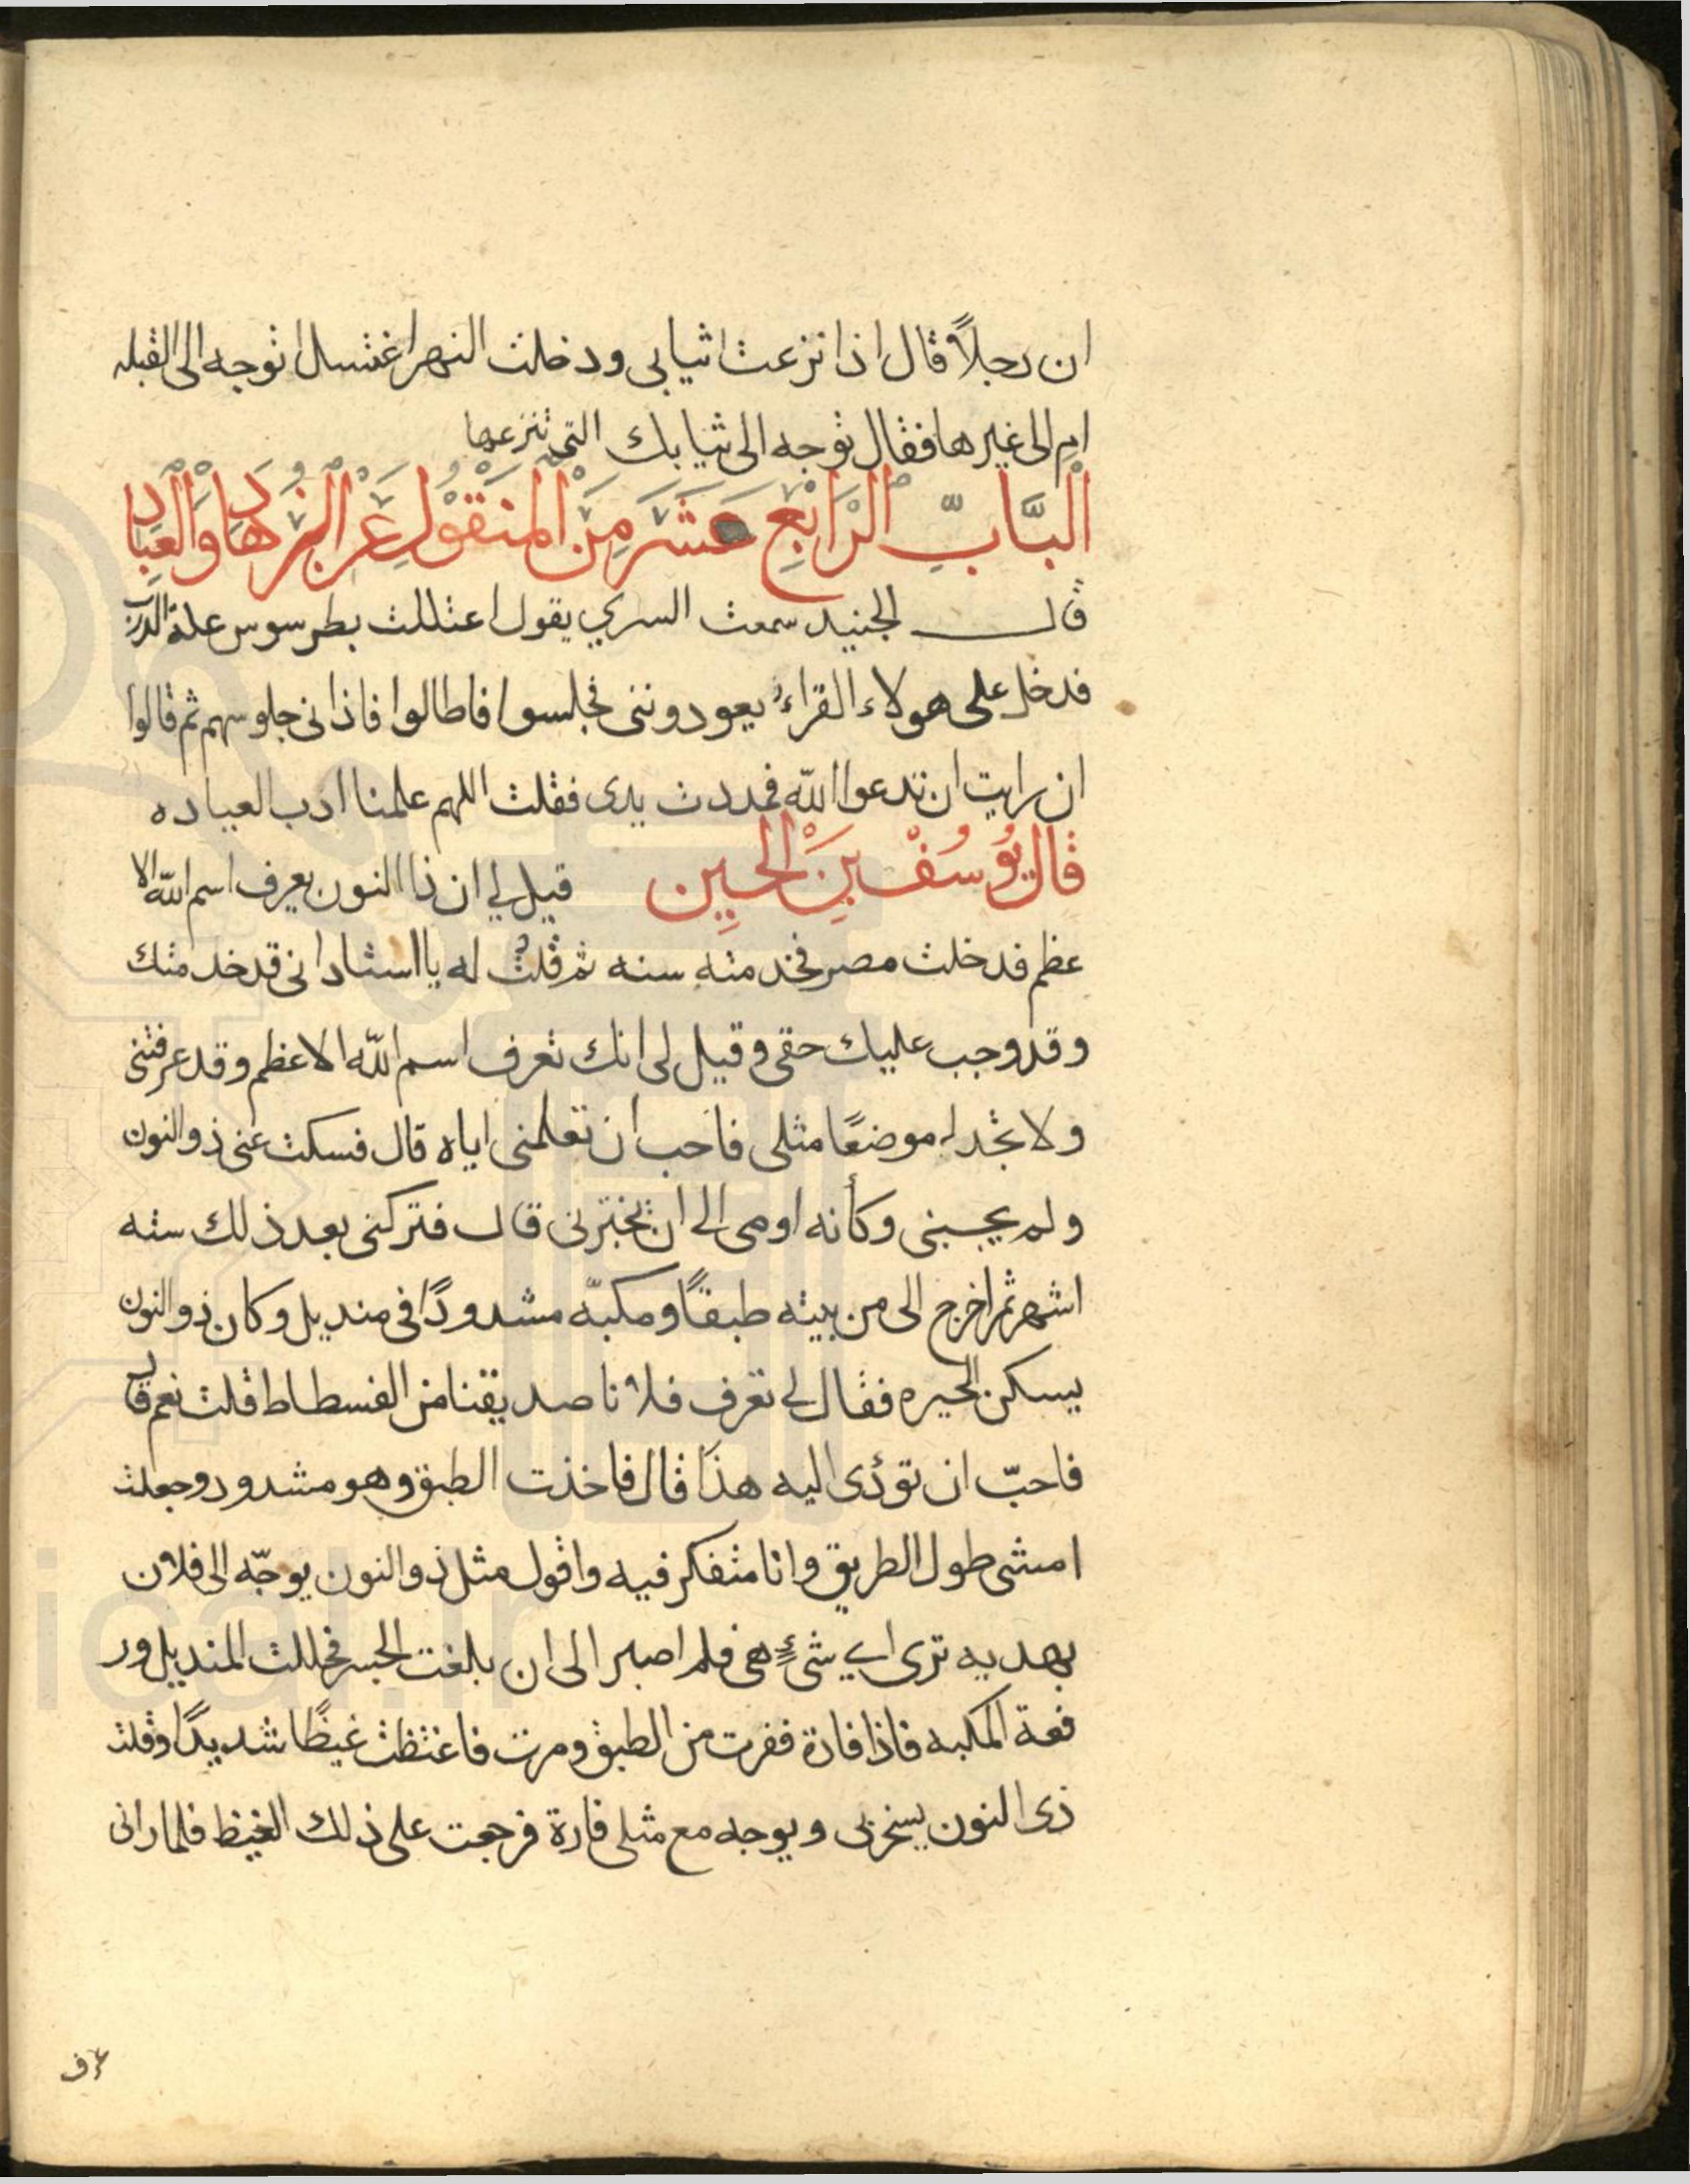 ان رجلاً قال اذا نزعت اثيابى ودخلت النهر اغتسل اتوجه الى القبله
ام الى غيرها فقال توجه الى ثيابك التى تنزعها
الباب الرابع عشر من المنقول عن الزهاد والعباد
قال الجنيد سمعت السري يقول اعتللت بطرسوس علة الذرب
فدخل على هولاء القراء يعودوننى فجلسوا فاطالوا فاذانى جلوسهم ثم قالوا
ان رايت ان تدعوا الله فمددت يدى فقلت اللهم علمنا ادب العياده
قال يوسف بن الحسين قيل لي ان ذا النون يعرف اسم الله الا
عظم فدخلت مصر فخدمته سنه ثم قلت له يا استاد انى قد خدمتك
وقد وجب عليك حقى وقيل لى انك تعرف اسم الله الاعظم وقد عرفتنى
ولا تجد له موضعًا مثلى فاحب ان تعلمنى اياه قال فسكت عنى ذو النون
ولم يجبنى وكأنه اومى الى ان تختبرنى قال فتركنى بعد ذلك سته
اشهر ثم اخرج الى من بيته طبقًا ومكبّه مشدودًا فى منديل وكان ذو النون
يسكن الجيره فقال لى تعرف فلانا صديقنا من الفسطاط قلت نعم قال
فاحبّ ان تؤدى اليه هذا قال فاخذت الطبق وهو مشدود وجعلت
امشى طول الطريق وانا متفكر فيه واقول مثل ذو النون يوجّه الى فلان
بهديه ترى اي شئٍ هى فلم اصبر الى ان بلغت الجسر فحللت المنديل ور
فعة المكبه فاذا فارة ففرت من الطبق ومرت فاغتظت غيظًا شديدًا وقلت
ذى النون يسخر بى ويوجه مع مثلى فارة فرجعت على ذلك الغيظ فلما رانى
عرف